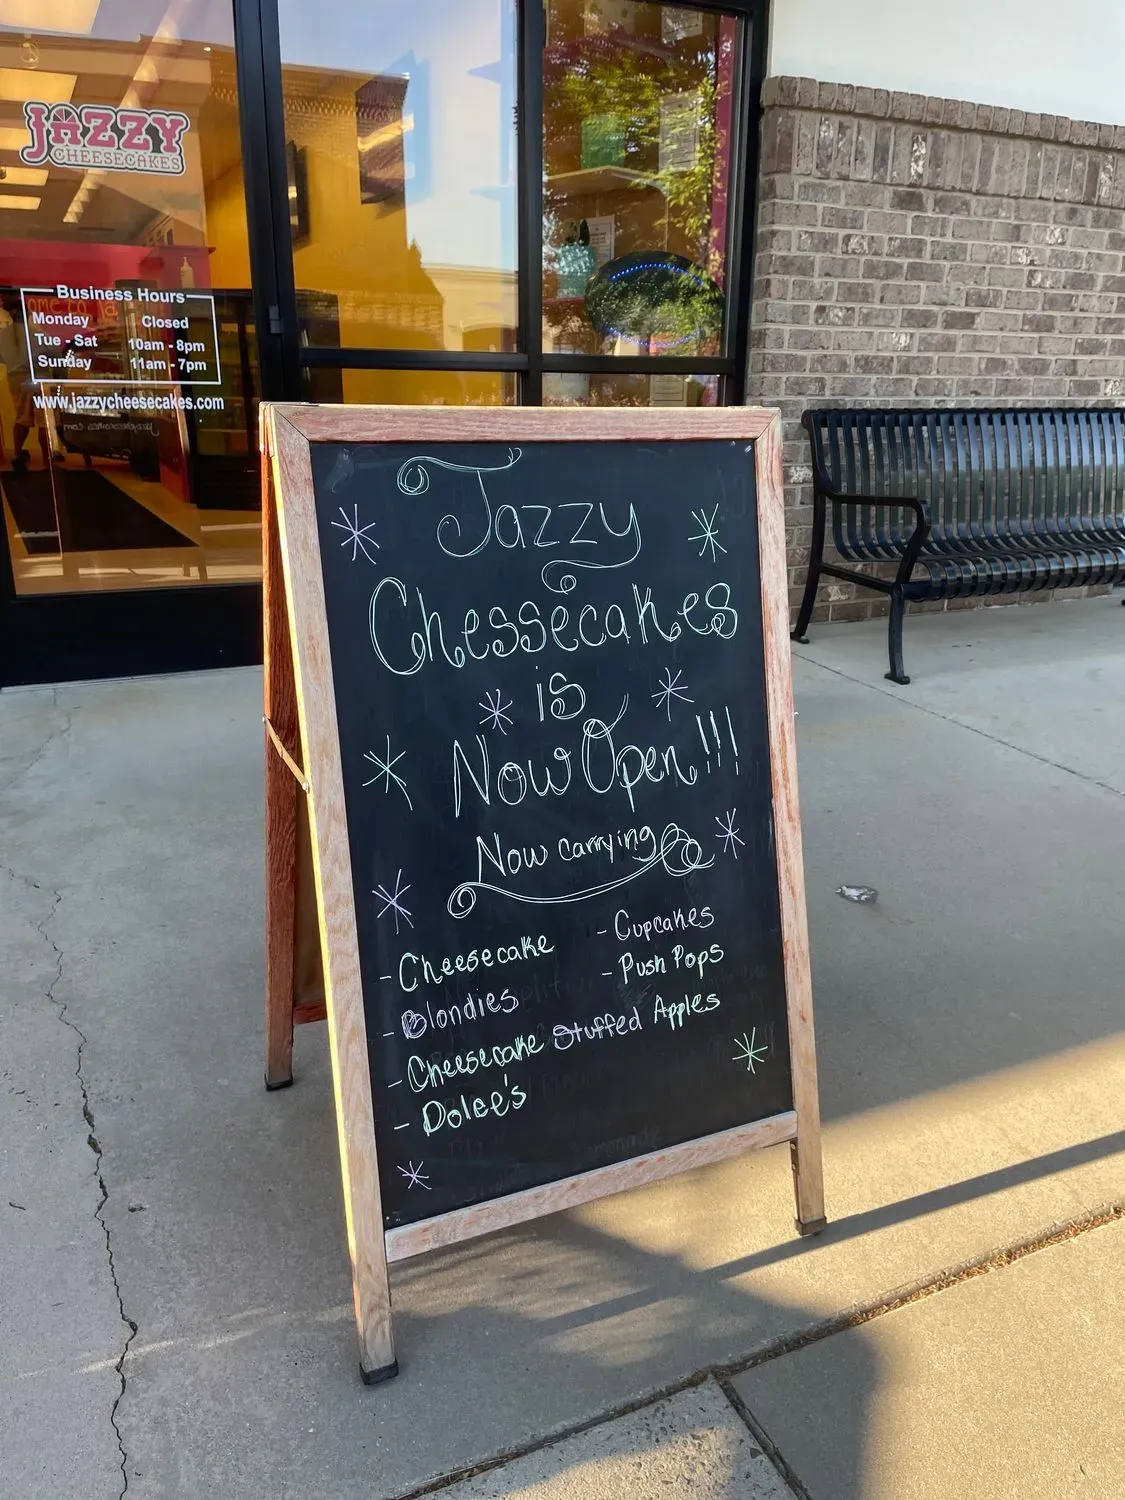 JAZZY
CHEESECAKES
Business Hours
Monday Closed
Tue - Sat 10am - 8pm
Sunday 11am - 7pm
www.jazzycheesecakes.com
Jazzy
Chessecakes
is
Now Open!!!
Now carrying
- Cheesecake
- Blondies
- Cheesecake Stuffed Apples
- Dolce's
- Cupcakes
- Push Pops